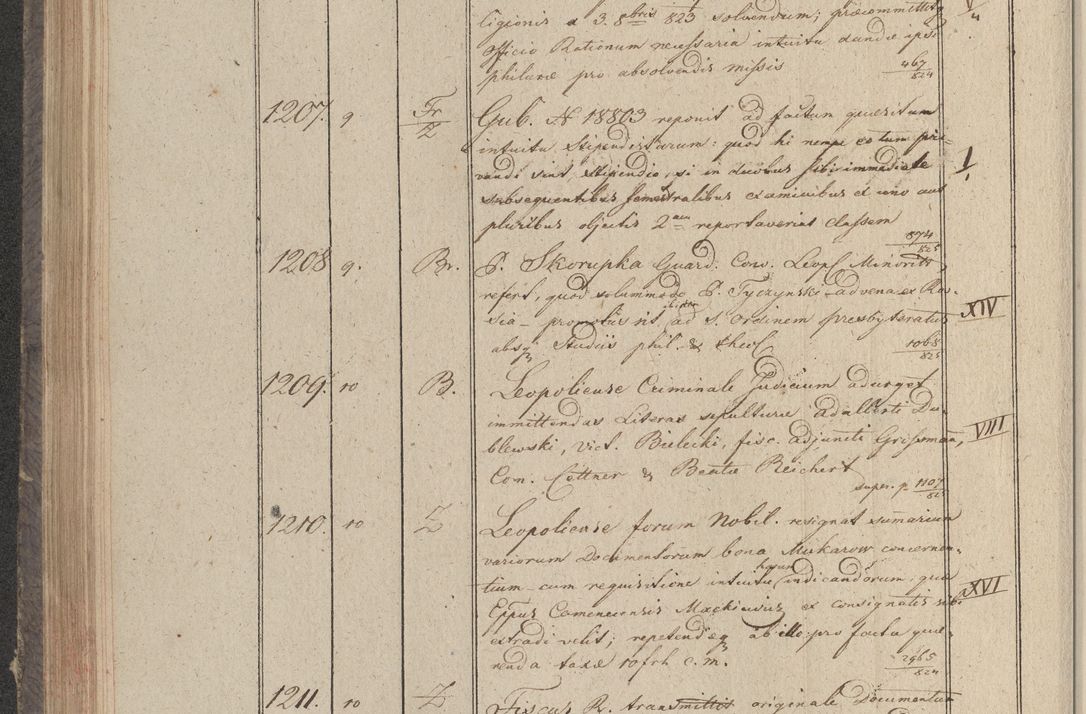 ligionis a 3. 8bris 823 solvendum; præcommittitq
Officio Rationum necessaria intuitu dandæ ipsi
philuræ pro absolvendis missis 467/824
1207. 9 Fr/Z Gub. N 18803 reponit ad factum quæsitum
intuitu Stipendistarum: quod hi nempe eo tum pri-
vandi sint stipendio, si in duobus sibi immediate I
subsequentibus semestralibus examinibus ex uno aut
pluribus objectis 2am reportaverint classem
874/825
1208 9. Br. P. Skorupka Guard. Conv. Leopl Minorit
refert, quod solummodo P. Tyczynski advena ex Rus-
sia promotus sit ibidem ad S. Ordinem presbyteratus XIV
absq Studiis phil. & theol 1068/825
1209. 10 B. Leopoliense Criminale Judicium adurget
immittendas Literas sepulturæ Adalberti Du-
blewski, vict. Bielecki, fisc. adjuncti Grissman, VIII
Con. Cöttner & Beatæ Reichert
super. p 1107/825
1210. 10 Z Leopoliense forum Nobil. resignat sumarium
variorum Documentorum bona Mukarow concernen-
tium cum requisitione intuitu horum indicandorum, quæ
Eppus Camenecensis Mackiewicz ex consignatis sibi XVI
extradi velit; repetendæq ab illo pro factu quæ-
renda taxæ 10 frh c.m. 2965/824
1211. 10 Z Fiscus R. transmittit originale Documentum